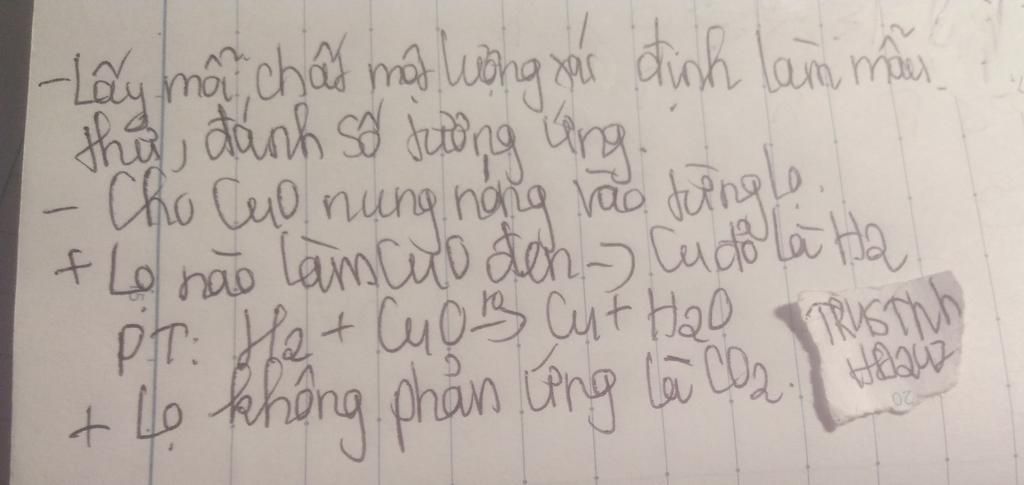 - Lấy mỗi chất một lượng xác định làm mẫu
thử, đánh số tương ứng.
- Cho CuO nung nóng vào từng lọ.
+ Lọ nào làm CuO đen -> Cu đỏ là H2
PT: H2 + CuO -> Cu + H2O
+ Lọ không phản ứng là CO2.